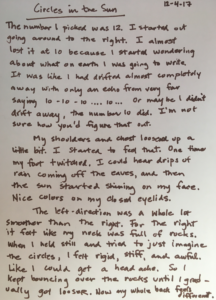 Circles in the Sun
12-4-17
The number I picked was 12. I started out
going around to the right. I almost
lost it at 10 because I started wondering
about what on earth I was going to write.
It was like I had drifted almost completely
away with only an echo from very far
saying 10-10-10 .... 10 ... Or maybe I didn't
drift away, the number 10 did. I'm not
sure how you'd figure that out.
My shoulders and chest loosened up a
little bit. I started to feel that. One time
my foot twitched. I could hear drips of
rain coming off the eaves, and then
the sun started shining on my face.
Nice colors on my closed eyelids.
The left-direction was a whole lot
smoother than the right. For the right
it felt like my neck was full of rocks.
When I held still and tried to just imagine
the circles, I felt rigid, stiff, and awful.
Like I could get a headache. So I
kept bouncing over the rocks until I grad-
ually got looser. Now my whole back feels
different.